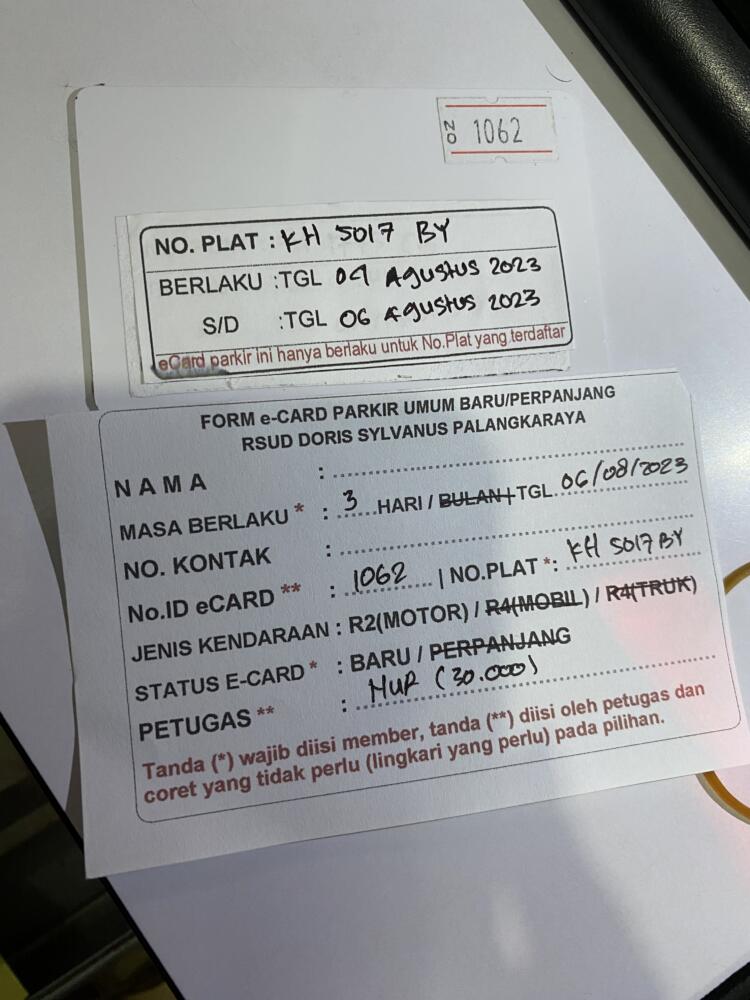 NO 1062
NO. PLAT : KH 5017 BY
BERLAKU :TGL 04 Agustus 2023
S/D :TGL 06 Agustus 2023
eCard parkir ini hanya berlaku untuk No.Plat yang terdaftar
FORM e-CARD PARKIR UMUM BARU/PERPANJANG
RSUD DORIS SYLVANUS PALANGKARAYA
NAMA :
MASA BERLAKU * : 3 HARI / BULAN | TGL. 06/08/2023
NO. KONTAK :
No.ID eCARD ** : 1062 | NO.PLAT *: KH 5017 BY
JENIS KENDARAAN : R2(MOTOR) / R4(MOBIL) / R4(TRUK)
STATUS E-CARD * : BARU / PERPANJANG
PETUGAS ** : MUR (30.000)
Tanda (*) wajib diisi member, tanda (**) diisi oleh petugas dan
coret yang tidak perlu (lingkari yang perlu) pada pilihan.